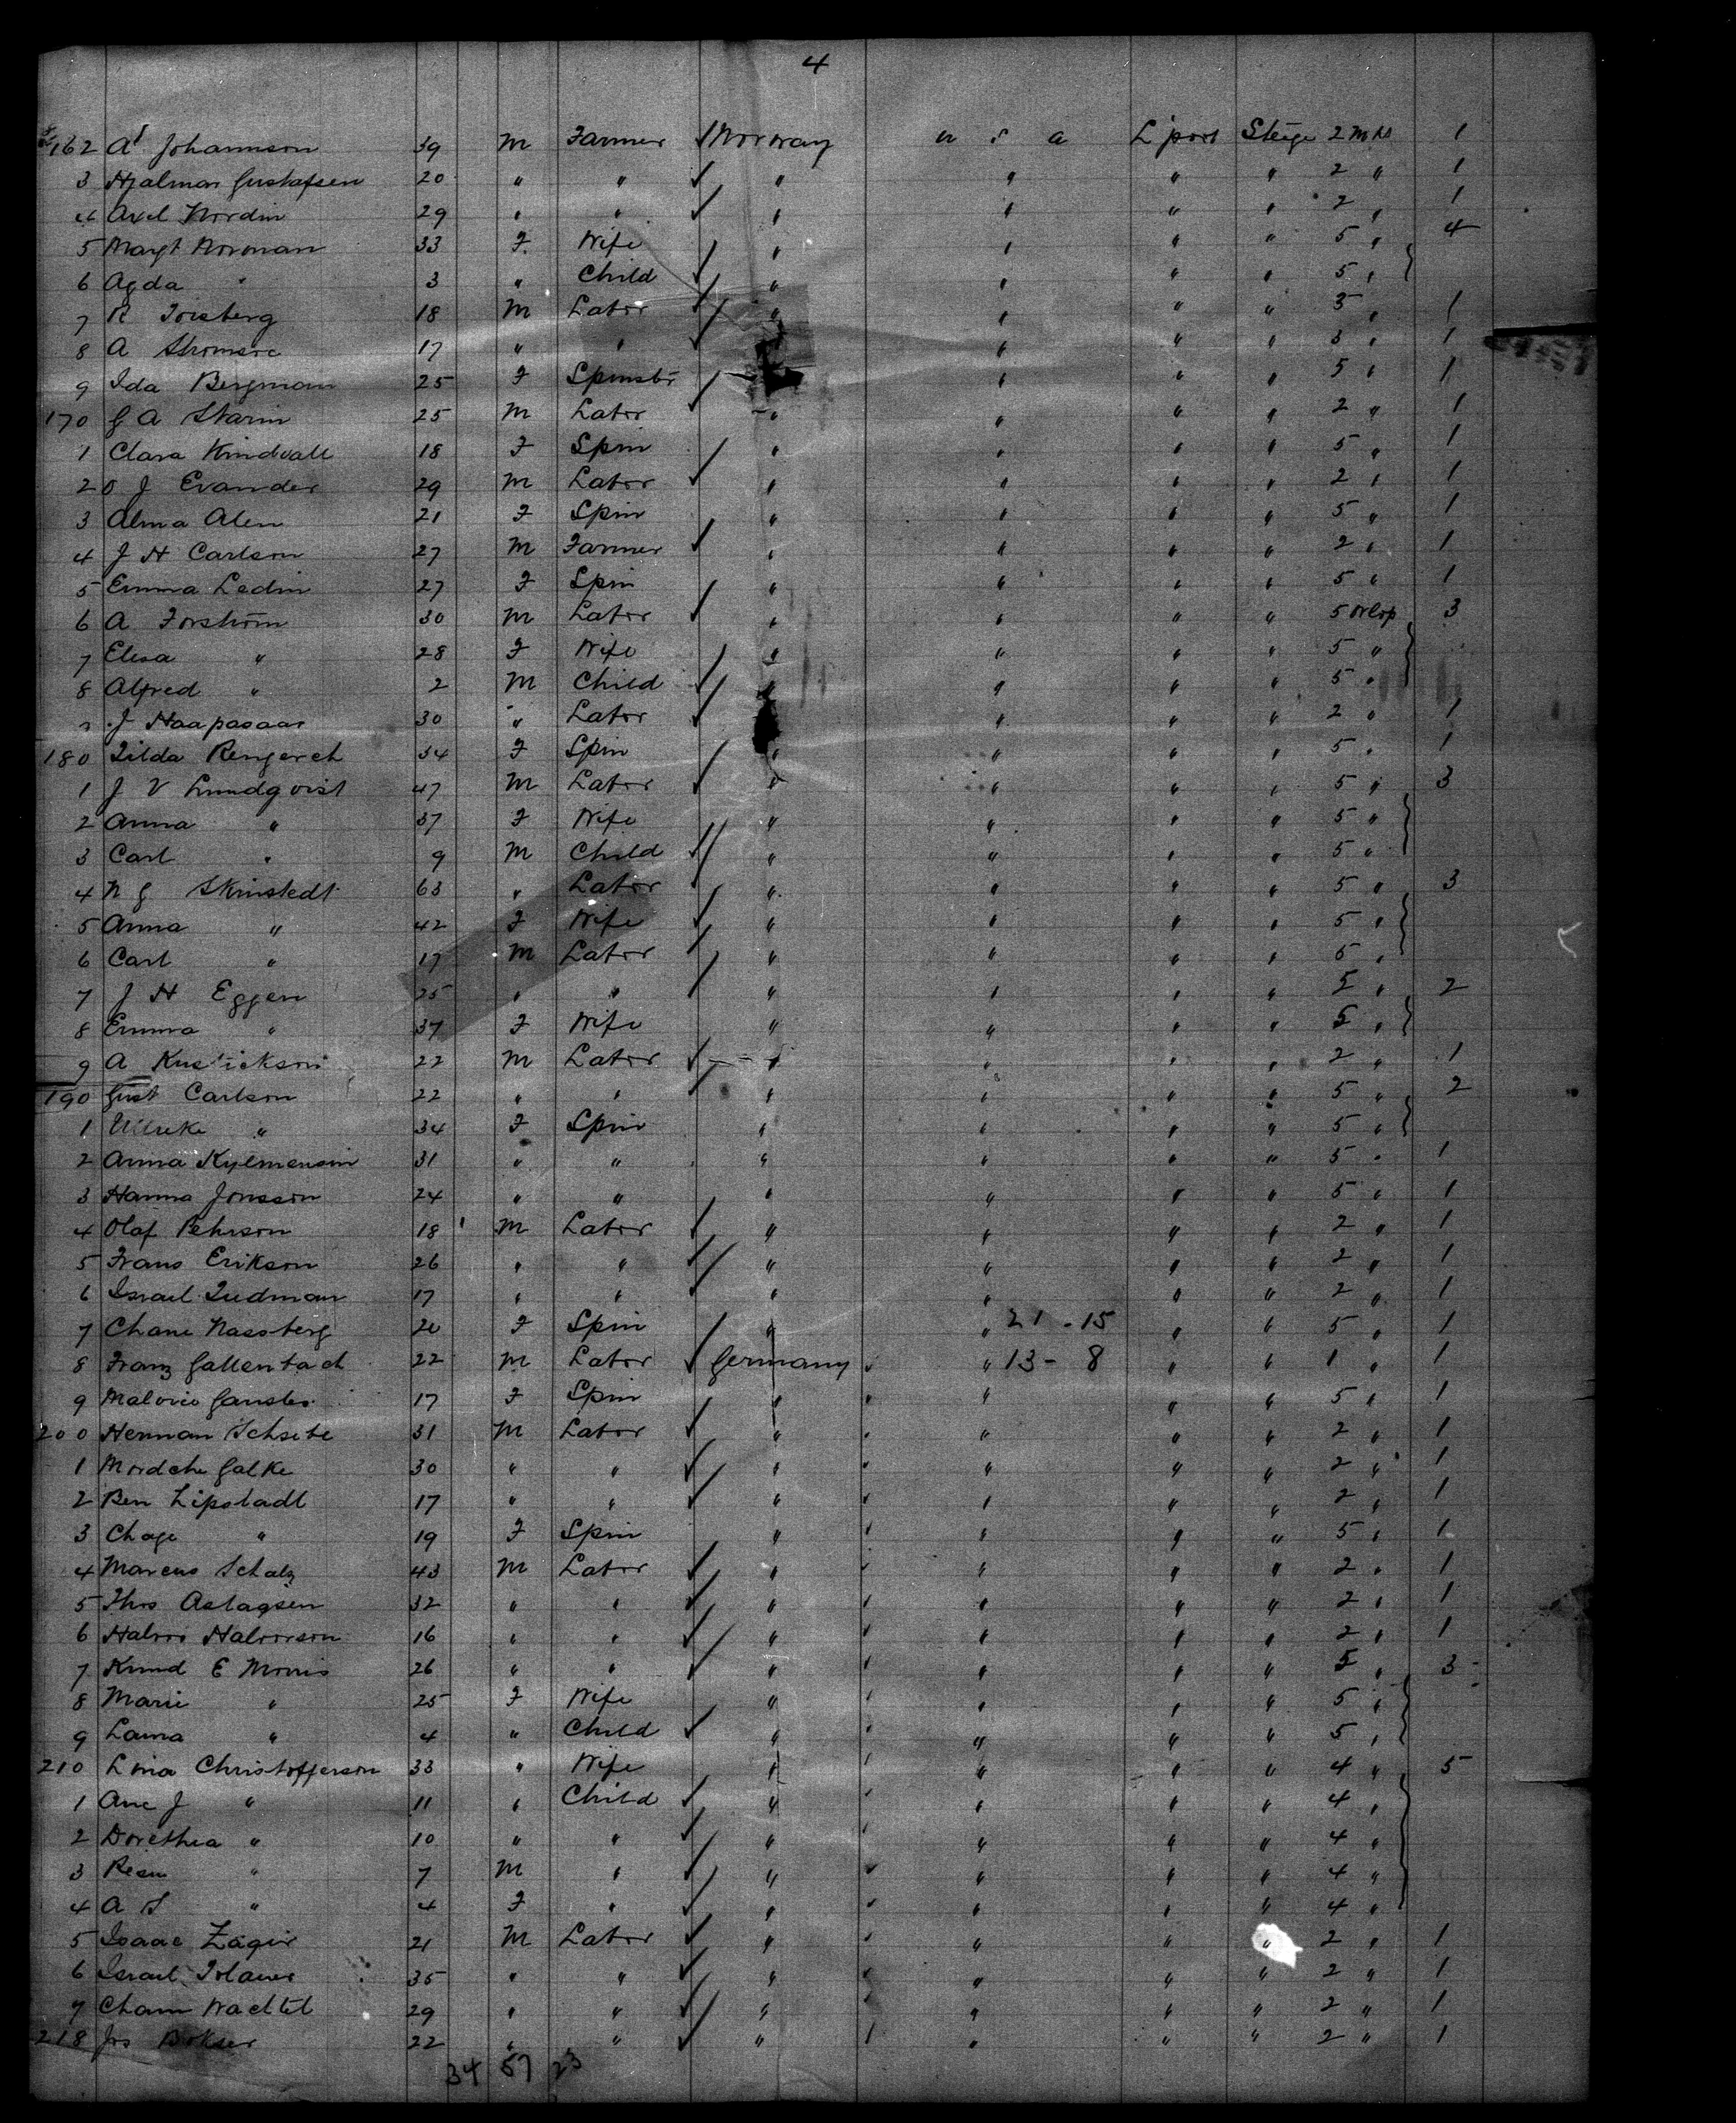 4
162 A Johannson 39 M Farmer Norway U S A L'pool Steige 2 Mhs 1
3 Hjalmar Gustafsen 20 " " " " " " 2 " 1
4 Axel Nordin 29 " " " " " " 2 " 1
5 Margt Norman 33 F. Wife " " " " 5 " 4
6 Agda " 3 " Child " " " " 5 "
7 R 18 M Labor " " " " 3 " 1
8 A 17 " " " " " " 3 " 1
9 Ida Bergman 25 F Spinstr " " " " 5 " 1
170 G A Starin 25 M Labor " " " " 2 " 1
1 Clara Kindvall 18 F Spin " " " " 5 " 1
2 O J Evander 29 M Labor " " " " 2 " 1
3 Alma Alen 21 F Spin " " " " 5 " 1
4 J H Carlson 27 M Farmer " " " " 2 " 1
5 Emma Ledin 27 F Spin " " " " 5 " 1
6 A Forström 30 M Labor " " " " 5 Orlop 3
7 Elisa " 28 F Wife " " " " 5 "
8 Alfred " 2 M Child " " " " 5 "
J Haapasaar 30 " Labor " " " " 2 " 1
180 Tilda 34 F Spin " " " " 5 " 1
1 J V Lundqvist 47 M Labor " " " " 5 " 3
2 Anna " 37 F Wife " " " " 5 "
3 Carl " 9 M Child " " " " 5 "
4 N G Skinstedt 63 " Labor " " " " 5 " 3
5 Anna " 42 F Wife " " " " 5 "
6 Carl " 17 M Labor " " " " 5 "
7 J H Eggen 25 " " " " " " 5 " 2
8 Emma " 37 F Wife " " " " 5 "
9 A 22 M Labor " " " " 2 " 1
190 Gust Carlson 22 " " " " " " 5 " 2
1 Ulreke " 34 F Spin " " " " 5 "
2 Anna 31 " " " " " " 5 " 1
3 Hanna Jonsson 24 " " " " " " 5 " 1
4 Olaf Pehrson 18 M Labor " " " " 2 " 1
5 Frans Erikson 26 " " " " " " 2 " 1
6 Israel 17 " " " " " " 2 " 1
7 Chane Nassberg 20 F Spin " " 21 - 15 " " 5 " 1
8 Franz Gallenbach 22 M Labor Germany " 13 - 8 " " 1 " 1
9 17 F Spin " " " " 5 " 1
200 Herman 31 M Labor " " " " 2 " 1
1 Mordche Galke 30 " " " " " " 2 " 1
2 Ben Lipstadt 17 " " " " " " 2 " 1
3 Chage " 19 F Spin " " " " 5 " 1
4 Marcus Schatz 43 M Labor " " " " 2 " 1
5 Thos Aslagsen 32 " " " " " " 2 " 1
6 Halvor Halvorson 16 " " " " " " 2 " 1
7 Knud E Monis 26 " " " " " " 5 " 3
8 Marie " 25 F Wife " " " " 5 "
9 Laura " 4 " Child " " " " 5 "
210 Lina Christofferson 33 " Wife " " " " 4 " 5
1 Ane J " 11 " Child " " " " 4 "
2 Dorethea " 10 " " " " " " 4 "
3 " 7 M " " " " " 4 "
4 A S " 4 F " " " " " 4 "
5 Isaac Zagir 21 M Labor " " " " 2 " 1
6 Israel 35 " " " " " " 2 " 1
7 Chaim Wachtel 29 " " " " " " 2 " 1
218 Jos Bokser 22 " " " " " " 2 " 1
34 57 23